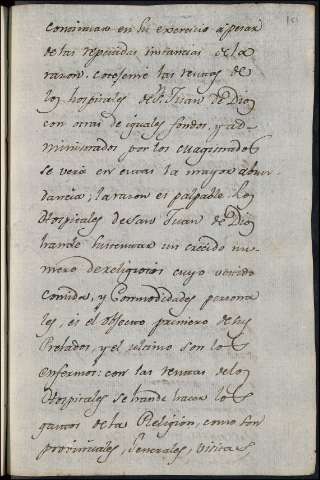 continuar en su exercicio apesar
de las repetidas instancias de la
razon. Cotesense las rentas de
los hospitales de Sn Juan de Dios
con otras de iguales fondos, y ad-
ministrados por los
se verá en estas la mayor abun-
dancia; la razon es palpable. Los
Hospitales de San Juan de Dios
han de sustentar un crecido nu-
mero de religiosos cuyo vestido
Comida, y Commodidades persona
les, es el obgeto primero de sus
Prelados, y el ultimo son los
enfermos: con las rentas de los
Hospitales se han de hacer los
gastos de la Religion, como son
provinciales, Generales, visitas,